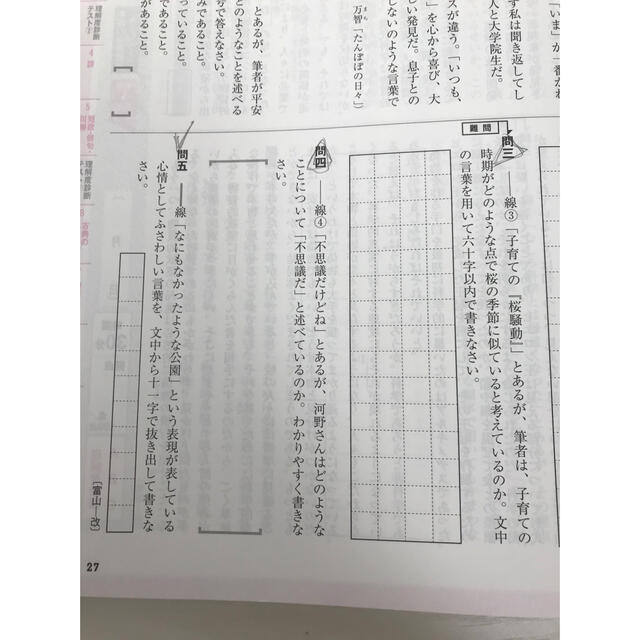 「いま」が一番かわ
す私は聞き返してし
人と大学院生だ。
スが違う。「いつも、
」を心から喜び、大
しい発見だ。息子との
しないのような言葉で
万智「たんぽぽの日々」）
まち
とあるが、筆者が平安
どのようなことを述べる
号で答えなさい。
であること。
っていること。
みであること。
があること。
難問
問三 ――線③「子育ての『桜騒動』」とあるが、筆者は、子育ての
時期がどのような点で桜の季節に似ていると考えているのか。文中
の言葉を用いて六十字以内で書きなさい。
問四 ――線④「不思議だけどね」とあるが、河野さんはどのような
ことについて「不思議だ」と述べているのか。わかりやすく書きな
さい。
問五 ――線「なにもなかったような公園」という表現が表している
心情としてふさわしい言葉を、文中から十一字で抜き出して書きな
さい。
〔富山―改〕
理解度診断
テスト①
4 詩
5 短歌・俳句・
理解度診断
6 古典の
27